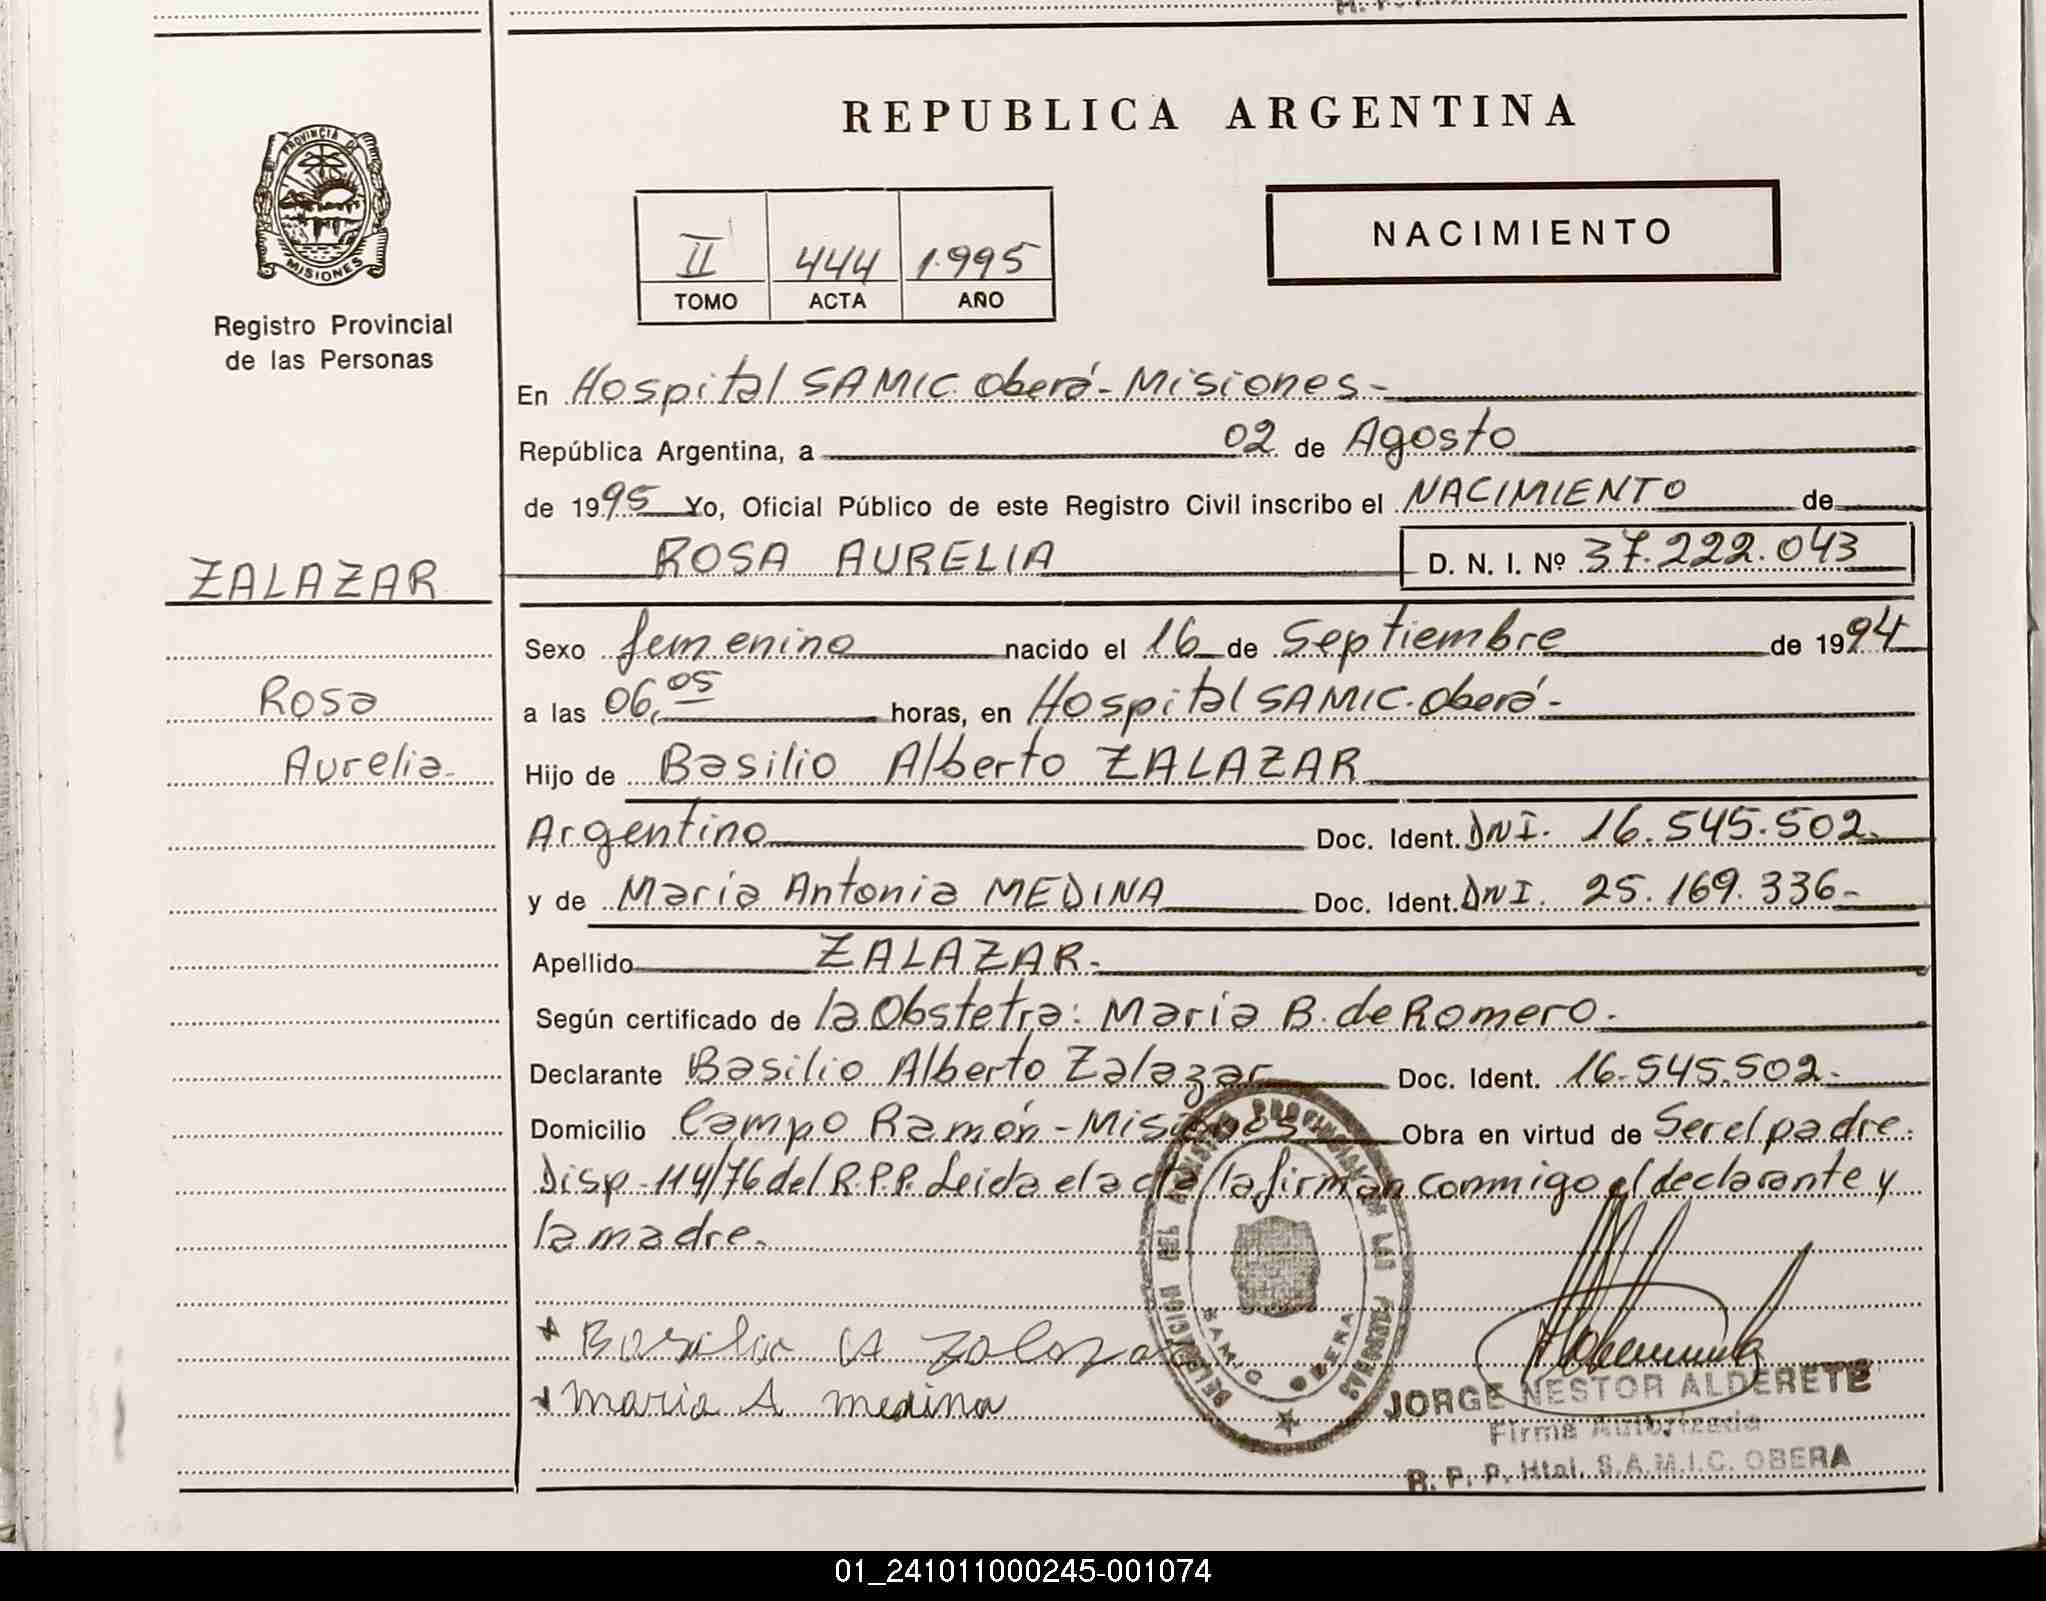 REPUBLICA ARGENTINA
PROVINCIA DE
MISIONES
Registro Provincial
de las Personas
II 444 1.995
TOMO ACTA AÑO
NACIMIENTO
En Hospital SAMIC. Oberá - Misiones -
República Argentina, a 02 de Agosto
de 1995 Yo, Oficial Público de este Registro Civil inscribo el NACIMIENTO de
ROSA AURELIA D. N. I. Nº 37.222.043
ZALAZAR
Rosa
Aurelia
Sexo femenino nacido el 16 de Septiembre de 1994
a las 06,05 horas, en Hospital SAMIC. Oberá -
Hijo de Basilio Alberto ZALAZAR
Argentino Doc. Ident. DNI. 16.545.502
y de María Antonia MEDINA Doc. Ident. DNI. 25.169.336-
Apellido ZALAZAR.-
Según certificado de la Obstetra: María B. de Romero.
Declarante Basilio Alberto Zalazar Doc. Ident. 16.545.502.
Domicilio Campo Ramón - Misiones Obra en virtud de Ser el padre.
Disp. 114/76 del R.P.P. Leida el acta la firman conmigo el declarante y
la madre.
Basilio A Zalazar
Maria A medina
DELEGACION DEL REGISTRO PROVINCIAL DE LAS PERSONAS
SAMIC OBERA
JORGE NESTOR ALDERETE
Firma Autorizada
R. P. P. Htal. S.A.M.I.C. OBERA
01_241011000245-001074